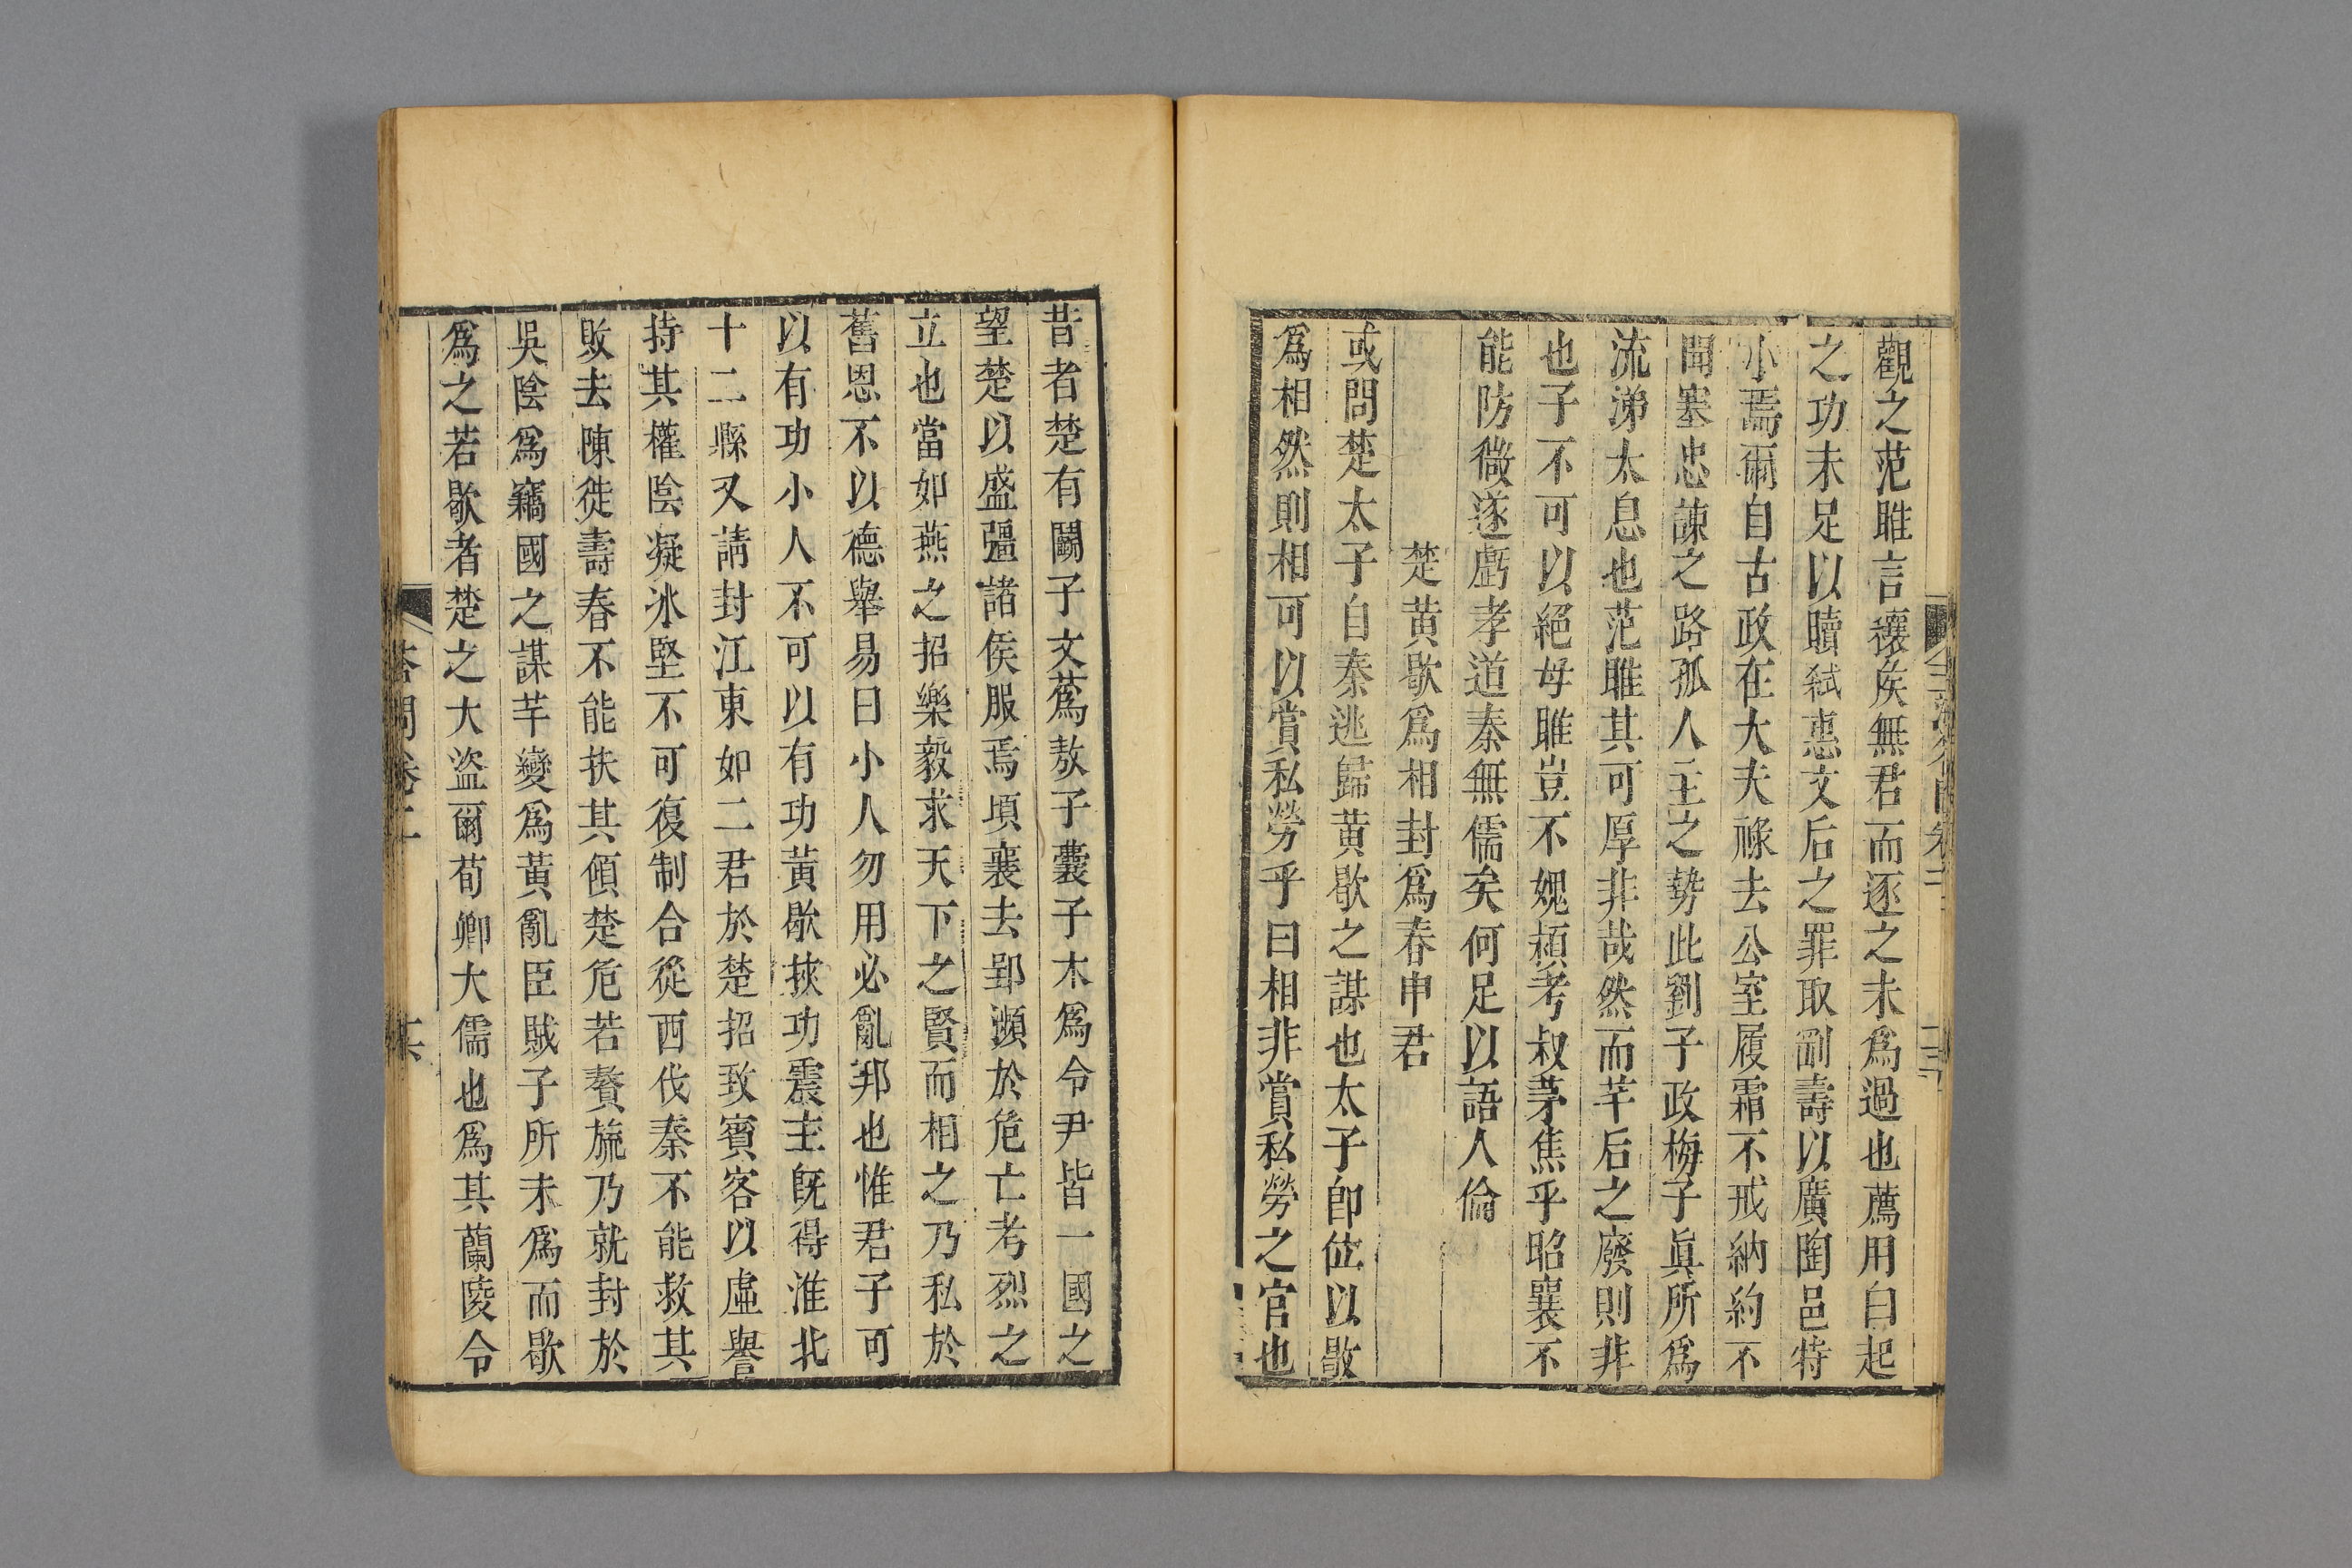 觀之范雎言穰矦無君而逐之未爲過也薦用白起
之功未足以贖弑惠文后之罪取剛壽以廣陶邑特
小焉爾自古政在大夫祿去公室履霜不戒納約不
聞塞忠諫之路孤人主之勢此劉子政梅子眞所爲
流涕太息也范雎其可厚非哉然而芊后之廢則非
也子不可以絕母雎豈不媿頴考叔茅焦乎昭襄不
能防微遂虧孝道秦無儒矣何足以語人倫
楚黄歇爲相封爲春申君
或問楚太子自秦逃歸黄歇之謀也太子卽位以歇
爲相然則相可以賞私勞乎曰相非賞私勞之官也
昔者楚有鬭子文蔿敖子囊子木爲令尹皆一國之
望楚以盛彊諸侯服焉頃襄去郢瀕於危亡考烈之
立也當如燕之招樂毅求天下之賢而相之乃私於
舊恩不以德舉易曰小人勿用必亂邦也惟君子可
以有功小人不可以有功黃歇挾功震主旣得淮北
十二縣又請封江東如二君於楚招致賓客以虛譽
持其權陰凝冰堅不可復制合從西伐秦不能救其
敗去陳徙壽春不能扶其傾楚危若贅旒乃就封於
吳陰爲竊國之謀芊變爲黃亂臣賊子所未爲而歇
爲之若歇者楚之大盜爾荀卿大儒也爲其蘭陵令
答問卷二